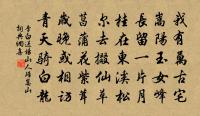 我有萬古宅
嵩陽玉女峰
長留一片月
挂在東溪松
尔去掇仙草
菖蒲花紫茸
歲晚或相訪
青天騎白龍
李白送楊山人歸嵩山